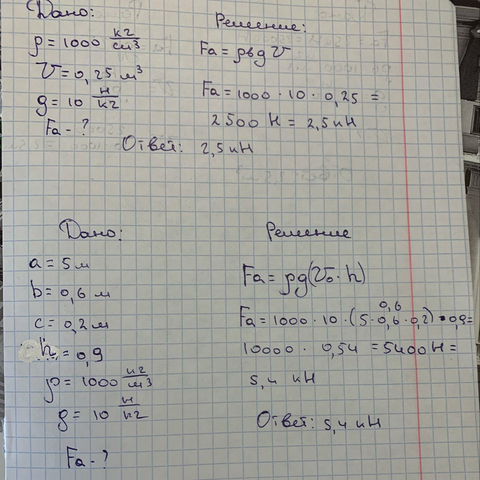 Дано:
ρ = 1000 кг/см³
V = 0,25 м³
g = 10 Н/кг
Fа - ?
Решение:
Fа = ρвg V
Fа = 1000 · 10 · 0,25 =
2500 Н = 2,5 кН
Ответ: 2,5 кН
Дано:
a = 5 м
b = 0,6 м
c = 0,2 м
h = 0,9
ρ = 1000 кг/см³
g = 10 Н/кг
Fа - ?
Решение
Fа = ρg(V₀ · h)
0,6
Fа = 1000 · 10 · (5 · 0,6 · 0,2) · 0,9 =
10000 · 0,54 = 5400 Н =
5,4 кН
Ответ: 5,4 кН